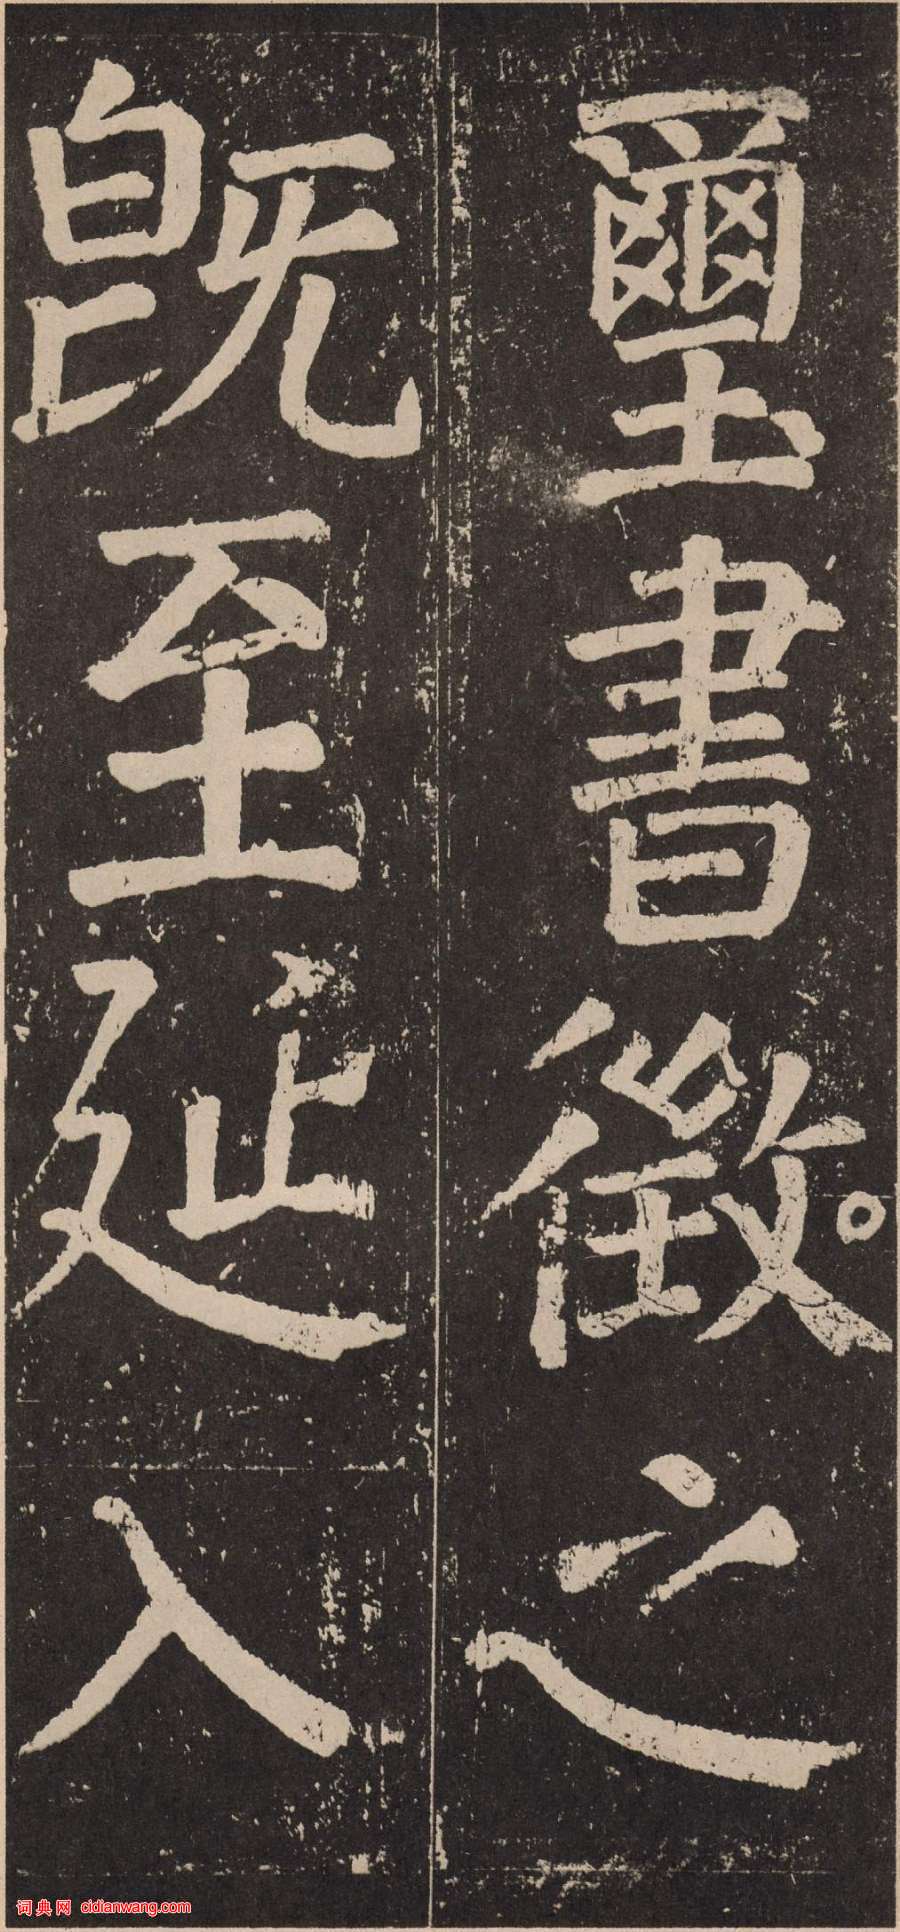 璽書徵之
既至延入
词典网 cidianwang.com